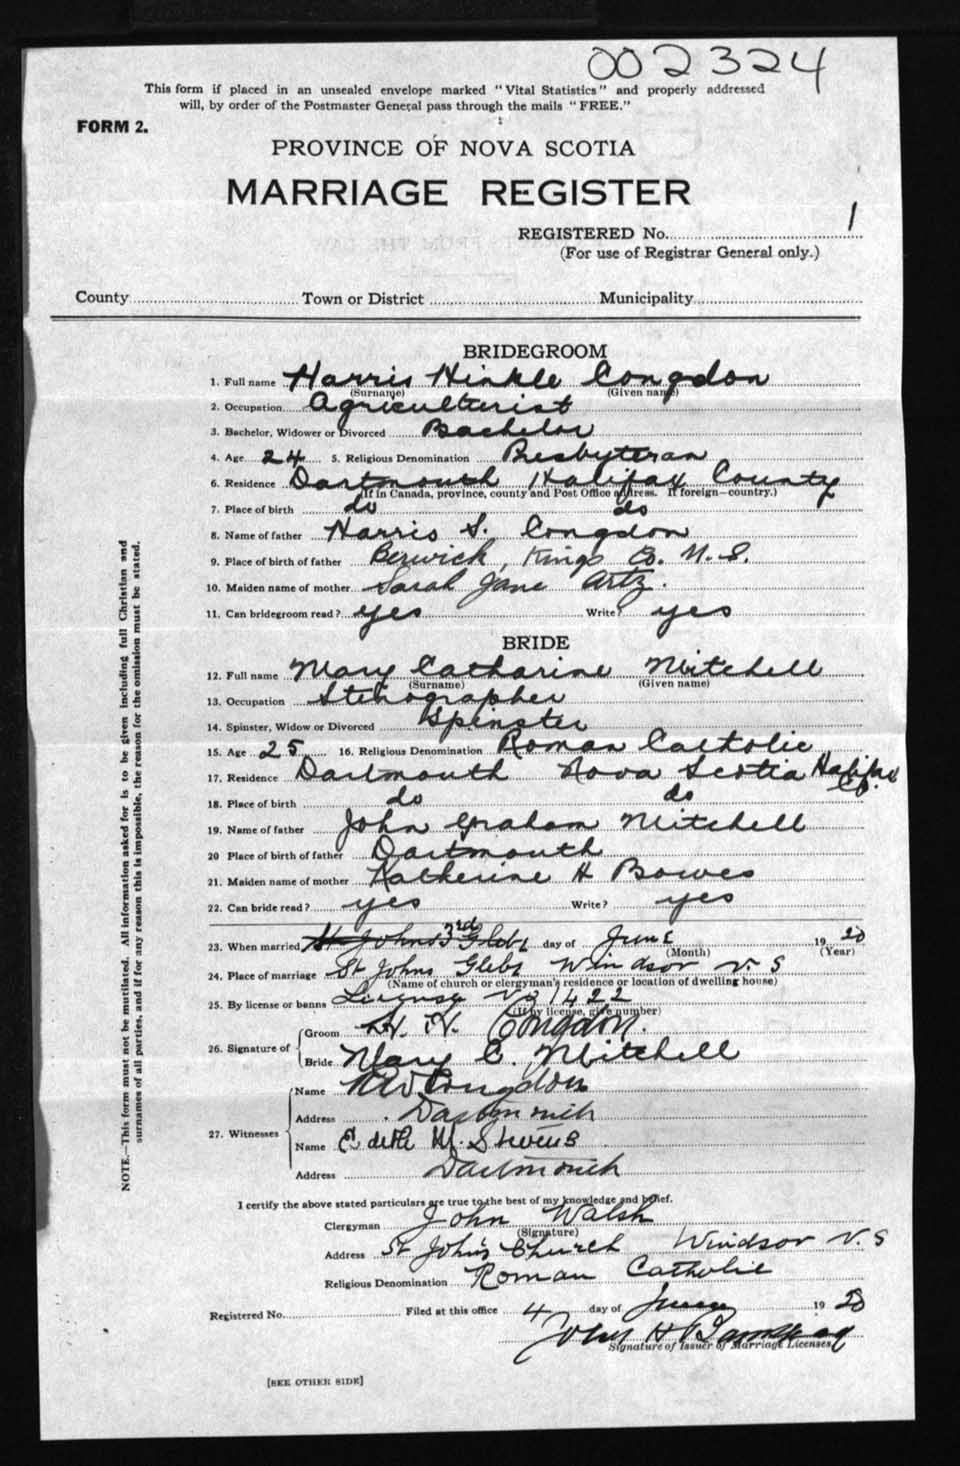 002324
This form if placed in an unsealed envelope marked "Vital Statistics" and properly addressed
will, by order of the Postmaster General pass through the mails "FREE."
FORM 2.
PROVINCE OF NOVA SCOTIA
MARRIAGE REGISTER
REGISTERED No. 1
(For use of Registrar General only.)
County Town or District Municipality
BRIDEGROOM
1. Full name Harris Hinkle Congdon
(Surname) (Given name)
2. Occupation Agriculturist
3. Bachelor, Widower or Divorced Bachelor
4. Age 24 5. Religious Denomination Presbyteran
6. Residence Dartmouth Halifax County
(If in Canada, province, county and Post Office address. If foreign—country.)
7. Place of birth do do
8. Name of father Harris S. Congdon
9. Place of birth of father Berwick, Kings Co. N.S.
10. Maiden name of mother Sarah Jane Artz.
11. Can bridegroom read? yes Write? yes
BRIDE
12. Full name Mary Catharine Mitchell
(Surname) (Given name)
13. Occupation Stenographer
14. Spinster, Widow or Divorced Spinster
15. Age 25 16. Religious Denomination Roman Catholic
17. Residence Dartmouth Nova Scotia Halifax Co.
18. Place of birth do do
19. Name of father John Graham Mitchell
20 Place of birth of father Dartmouth
21. Maiden name of mother Katherine H Bowes
22. Can bride read? yes Write? yes
23. When married St Johns 3rd Glebe day of June 1920
(Month) (Year)
24. Place of marriage St Johns Glebe Windsor N.S
(Name of church or clergyman's residence or location of dwelling house)
25. By license or banns License No 1422
(If by license, give number)
26. Signature of Groom H. H. Congdon.
Bride Mary C. Mitchell
27. Witnesses Name Congdon
Address Dartmouth
Name Edith M. Stevens
Address Dartmouth
I certify the above stated particulars are true to the best of my knowledge and belief.
Clergyman John Walsh
(Signature)
Address St John's Church Windsor N.S
Religious Denomination Roman Catholic
Registered No. Filed at this office 4 day of June 1920
John H
Signature of Issuer of Marriage Licenses
[SEE OTHER SIDE]
NOTE.—This form must not be mutilated. All information asked for is to be given including full Christian and
surnames of all parties, and if for any reason this is impossible, the reason for the omission must be stated.